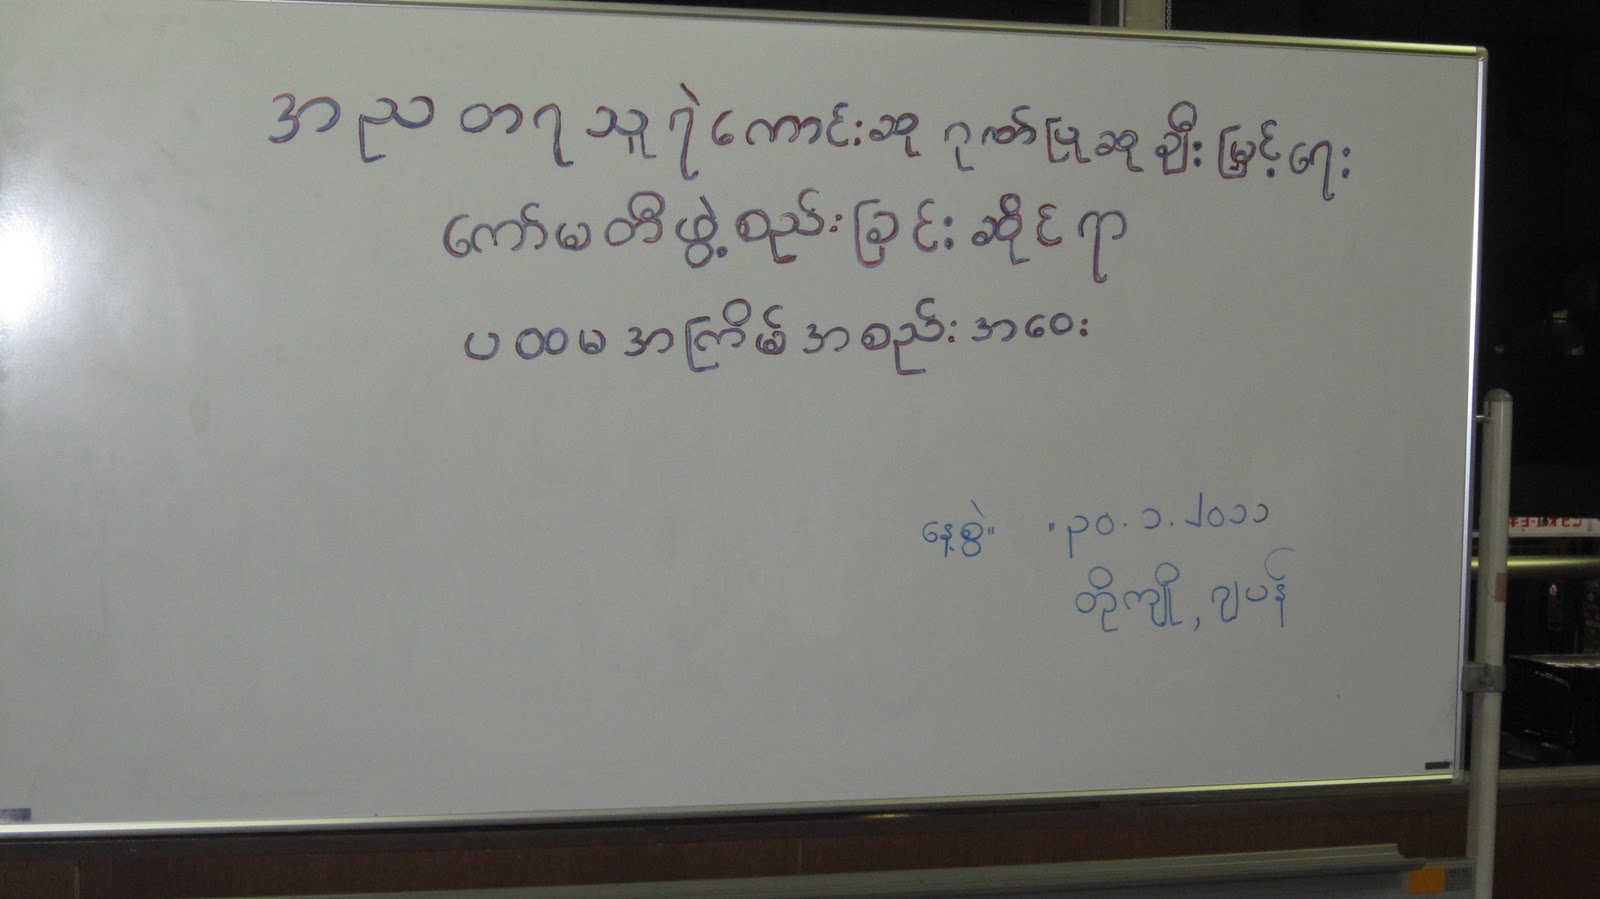 အညတရသူရဲကောင်းဆု ဂုဏ်ပြုဆုချီးမြှင့်ရေး
ကော်မတီဖွဲ့စည်းခြင်းဆိုင်ရာ
ပထမအကြိမ်အစည်းအဝေး
နေ့စွဲ။ ။၃၀.၁.၂၀၁၁
တိုကျို, ဂျပန်